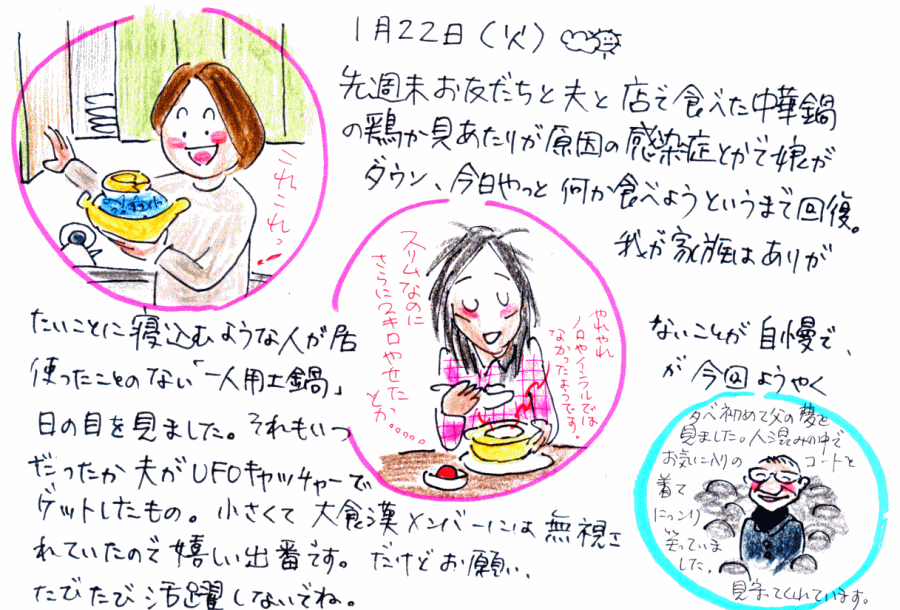 1月22日(火)
先週末お友だちと夫と店で食べた中華鍋
の鶏か貝あたりが原因の感染症とかで娘が
ダウン、今日やっと何か食べようというまで回復。
我が家族はありが
たいことに寝込むような人が居
ないことが自慢で、
使ったことのない「一人用土鍋」
が今回ようやく
日の目を見ました。それもいつ
だったか夫がUFOキャッチャーで
ゲットしたもの。小さくて大食漢メンバーには無視さ
れていたので嬉しい出番です。だけどお願い、
たびたび活躍しないでね。
これこれっ
スリムなのに
さらに2キロやせた
とか……
やれやれ
ノロやインフルでは
なかったようです。
夕べ初めて父の夢を
見ました。人混みの中で
お気に入りのコートと
着て
にっこり
笑っていま
した。
見守ってくれています。